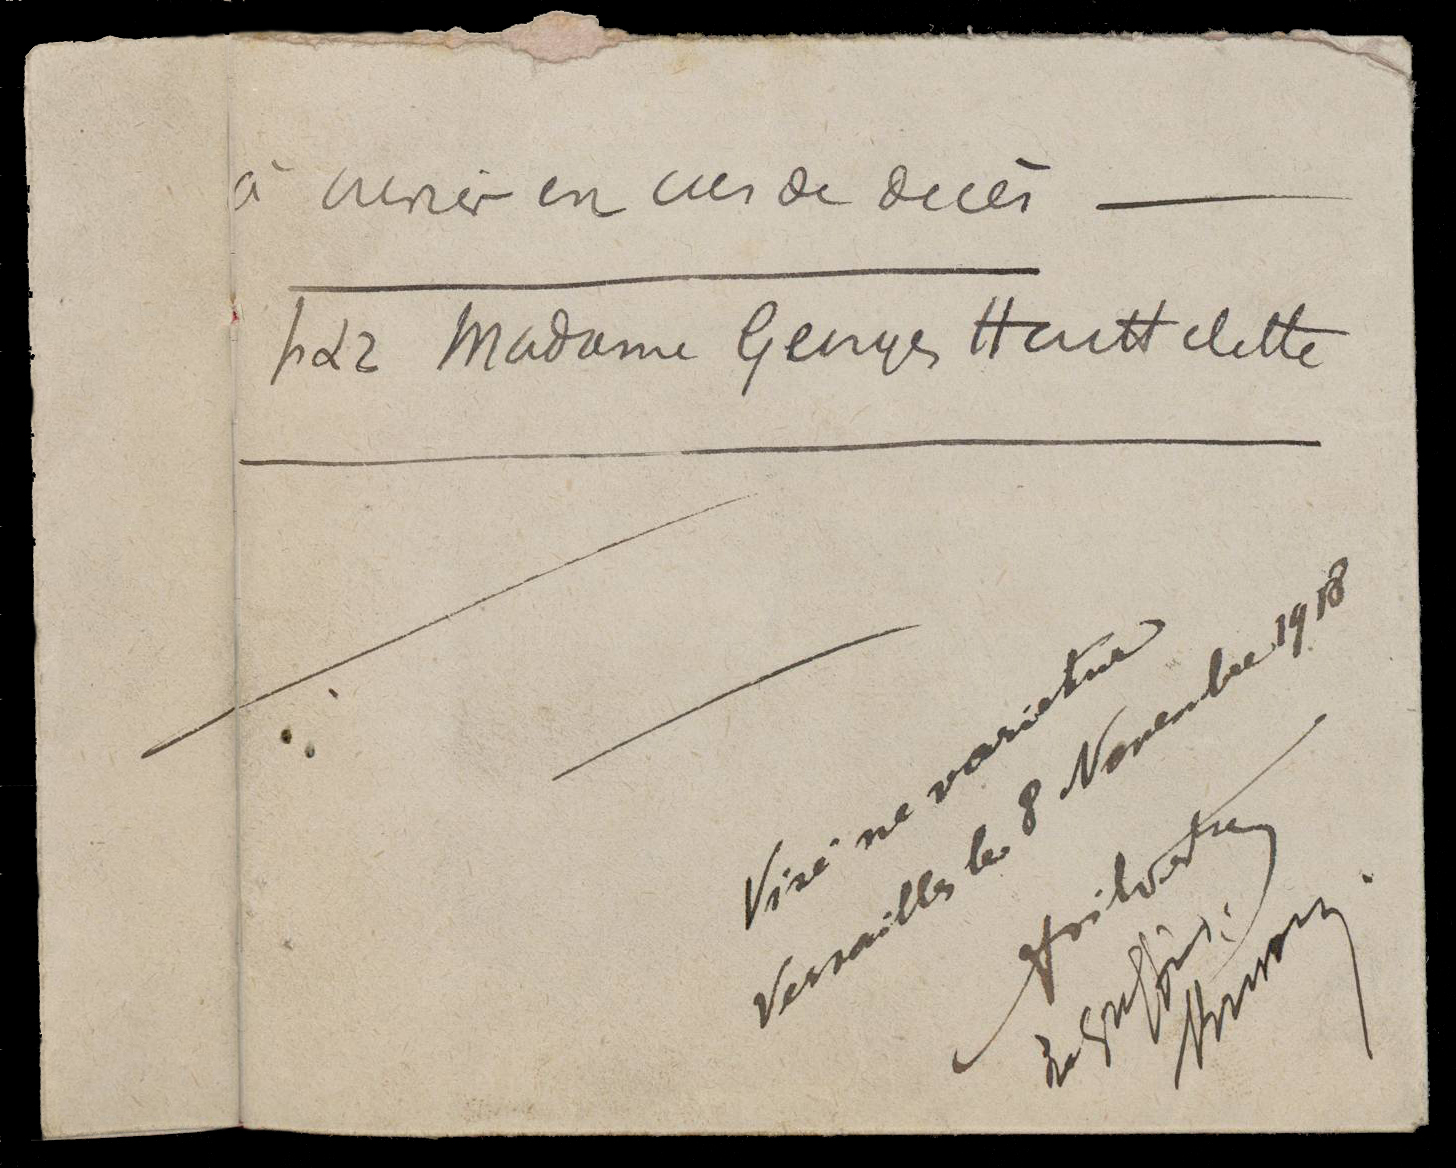 à ouvrir en cas de décès
par Madame Georges
Visé ne varietur
Versailles le 8 Novembre 1918
Le Greffier: